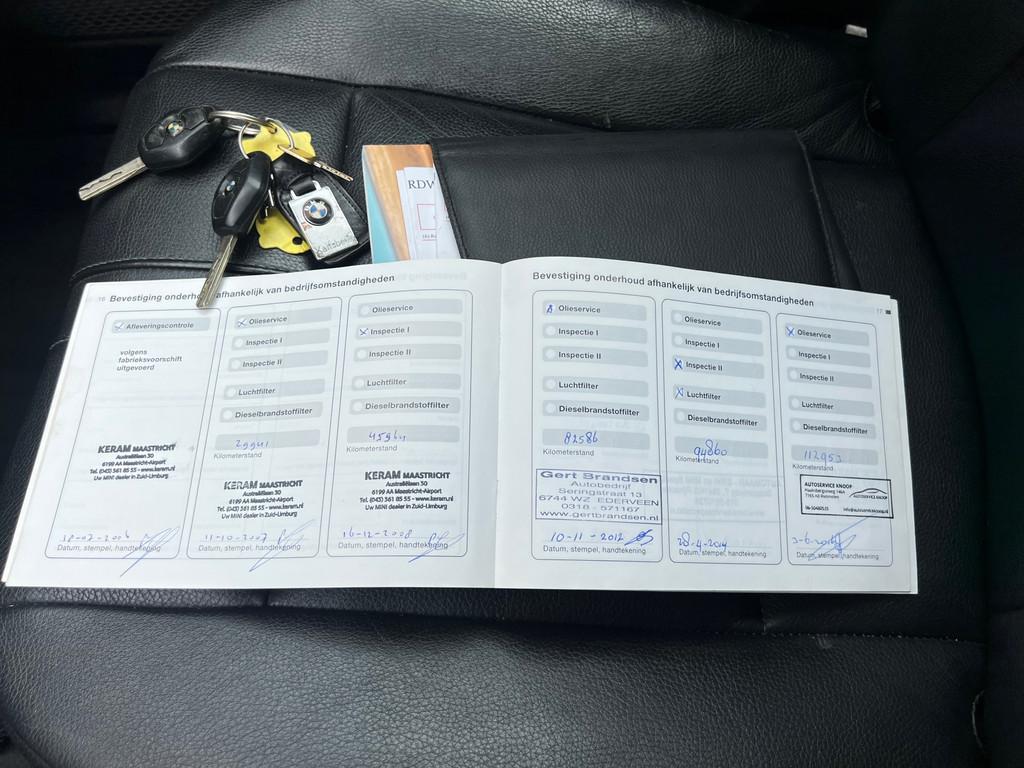 RDW
Karlsbe
16 Bevestiging onderhoud afhankelijk van bedrijfsomstandigheden
Afleveringscontrole
volgens
fabrieksvoorschrift
uitgevoerd
KERAM MAASTRICHT
Australiëlaan 30
6199 AA Maastricht-Airport
Tel. (043) 361 85 55 - www.keram.nl
Uw MINI dealer in Zuid-Limburg
Datum, stempel, handtekening
Olieservice
Inspectie I
Inspectie II
Luchtfilter
Dieselbrandstoffilter
Kilometerstand
KERAM MAASTRICHT
Australiëlaan 30
6199 AA Maastricht-Airport
Tel. (043) 361 85 55 - www.keram.nl
Uw MINI dealer in Zuid-Limburg
11-10-2007
Datum, stempel, handtekening
Olieservice
Inspectie I
Inspectie II
Luchtfilter
Dieselbrandstoffilter
45964
Kilometerstand
KERAM MAASTRICHT
Australiëlaan 30
6199 AA Maastricht-Airport
Tel. (043) 361 85 55 - www.keram.nl
Uw MINI dealer in Zuid-Limburg
16-12-2008
Datum, stempel, handtekening
Bevestiging onderhoud afhankelijk van bedrijfsomstandigheden
17
Olieservice
Inspectie I
Inspectie II
Luchtfilter
Dieselbrandstoffilter
82586
Kilometerstand
Gert Brandsen
Autobedrijf
Seringstraat 13
6744 WZ EDERVEEN
0318 - 571167
www.gertbrandsen.nl
10-11-2012
Datum, stempel, handtekening
Olieservice
Inspectie I
Inspectie II
Luchtfilter
Dieselbrandstoffilter
94860
Kilometerstand
28-4-2014
Datum, stempel, handtekening
Olieservice
Inspectie I
Inspectie II
Luchtfilter
Dieselbrandstoffilter
112953
Kilometerstand
AUTOSERVICE KNOOP
AUTOSERVICE KNOOP
Datum, stempel, handtekening